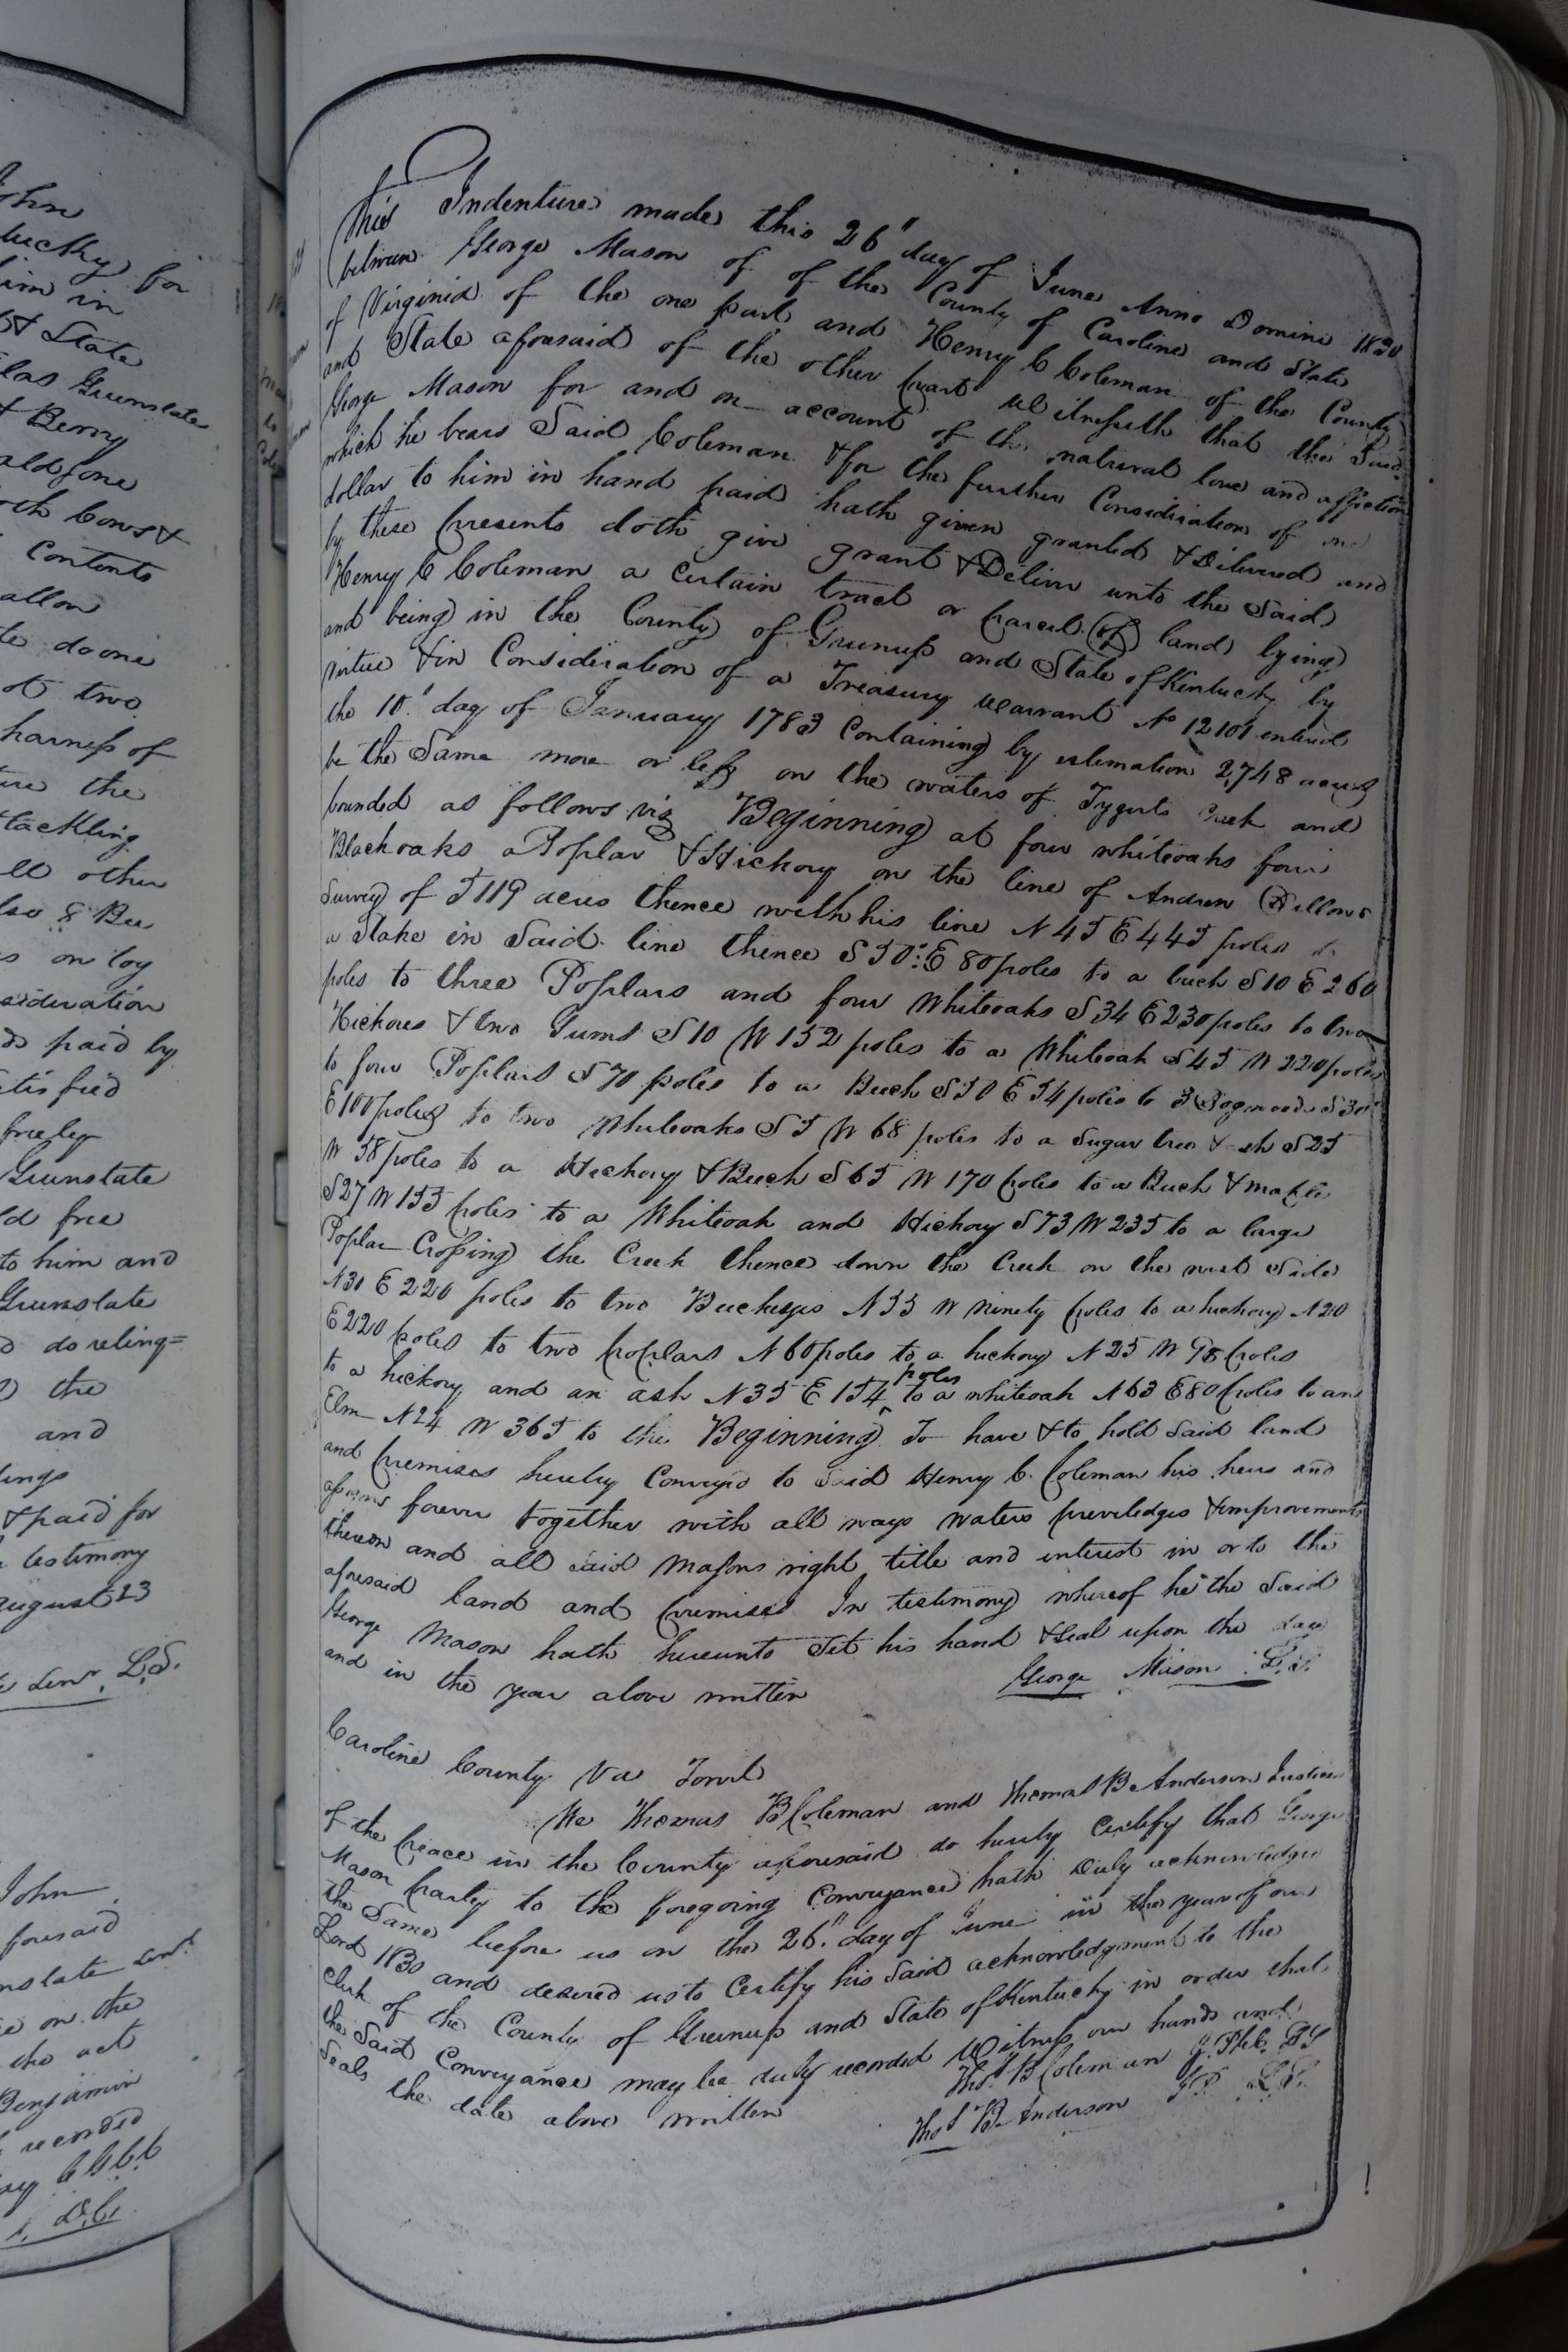 John
tucky for
him in
& State
las Grunslate
& Berry
ald one
Cows &
Contents
allow
doone
two
harness of
the
tackling
all other
also 8 Bee
on log
sideration
paid by
tisfied
freely
Grunslate
free
to him and
Grunslate
do relinq=
the
and
& paid for
testimony
august 23
Senr. L.S.
John
foresaid
nslate Senr
on the
the act
Benjamin
recorded
D.C.
This Indenture made this 26" day of June Anno Domini 1830
between George Mason of of the County of Caroline and State
of Virginia of the one part and Henry C Coleman of the County
and State aforesaid of the other part Witnesseth that the Said
George Mason for and on account of the natural love and affection
which he bears Said Coleman & for the further Consideration of one
dollar to him in hand paid hath given granted & Delivered and
by these presents doth give grant & Deliver unto the Said
Henry C Coleman a certain tract or parcel (of) land lying
and being in the County of Greenup and State of Kentucky by
virtue & in Consideration of a Treasury warrant No 12101 entered
the 10" day of January 1783 Containing by estimation 2,748 acres
be the Same more or less on the waters of Tygerts Creek and
bounded as follows viz Beginning at four whiteoaks four
Blackoaks a Poplar & Hickory on the line of Andrew Dillons
Survey of 5119 acres thence with his line N 45 E 445 poles to
a Stake in Said line thence S 50: E 80 poles to a buck S 10 E 260
poles to three Poplars and four Whiteoaks S 34 E 230 poles to two
Hickories & two Gums S 10 W 152 poles to a Whiteoak S 45 W 220 poles
to four Poplars S 70 poles to a Beech S 50 E 54 poles to 3 Dogwoods S 30
E 100 poles to two Whiteoaks S 5 W 68 poles to a Sugar tree & ash S 25
W 58 poles to a Hickory & Beech S 65 W 170 poles to a Beech & maple
S 27 W 155 poles to a Whiteoak and Hickory S 73 W 235 to a large
Poplar Crossing the Creek thence down the Creek on the west Side
N 30 E 220 poles to two Buckeyes N 55 W Ninety poles to a hickory N 20
E 220 poles to two poplars N 60 poles to a hickory N 25 W 98 poles
to a hickory and an ash N 35 E 154 poles to a whiteoak N 63 E 80 poles to an
Elm N 24 W 365 to the Beginning To have & to hold Said land
and premises hereby Conveyed to Said Henry C. Coleman his heirs and
assigns forever together with all ways waters previledges & improvements
thereon and all Said Masons right title and interest in or to the
aforesaid land and premises In testimony whereof he the Said
George Mason hath hereunto Set his hand & Seal upon the day
and in the year above written George Mason L.S.
Caroline County Va Towit
We Thomas B Coleman and Thomas B. Anderson Justices
of the peace in the County aforesaid do hereby Certify that George
Mason party to the foregoing Conveyance hath Duly acknowledged
the Same before us on the 26" day of June in the year of our
Lord 1830 and desired us to Certify his Said acknowledgement to the
Clerk of the County of Greenup and State of Kentucky in order that
the Said Conveyance may be duly recorded Witness our hands and
Seals the date above written Thos B Coleman
Thos B. Anderson J P L.S.